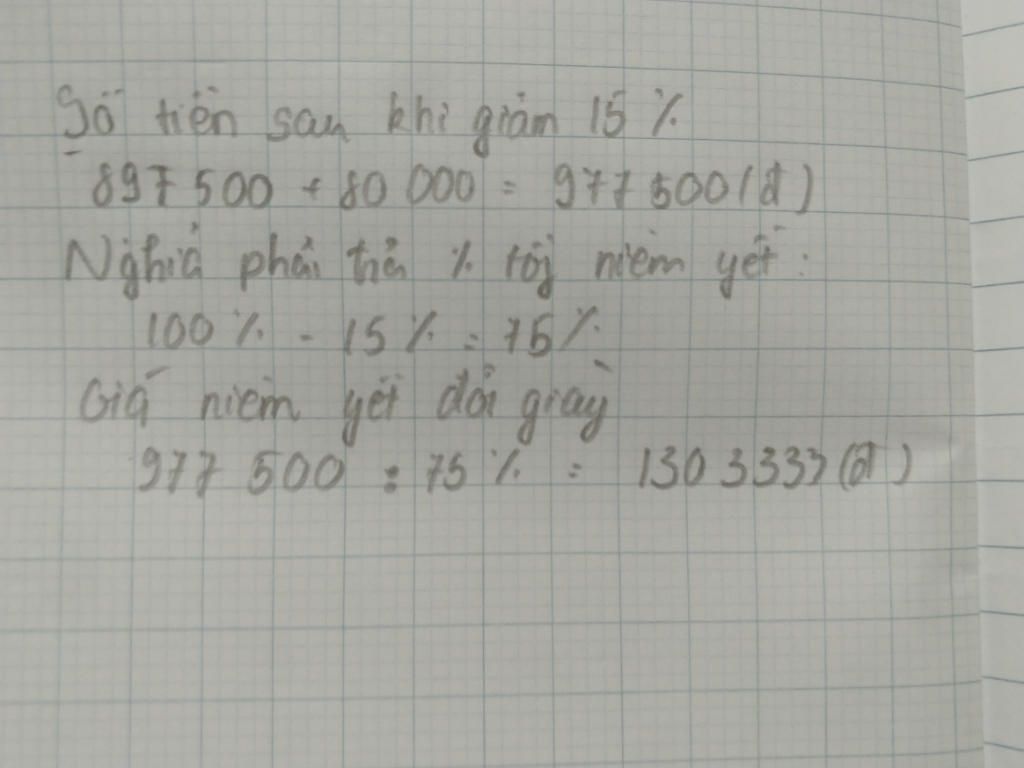 Số tiền sau khi giảm 15%
897 500 + 80 000 = 977 500 (đ)
Nghĩa phải trả % rồi niêm yết:
100% - 15% = 75%
Giá niêm yết đôi giày
977 500 : 75% = 130 3333 (đ)